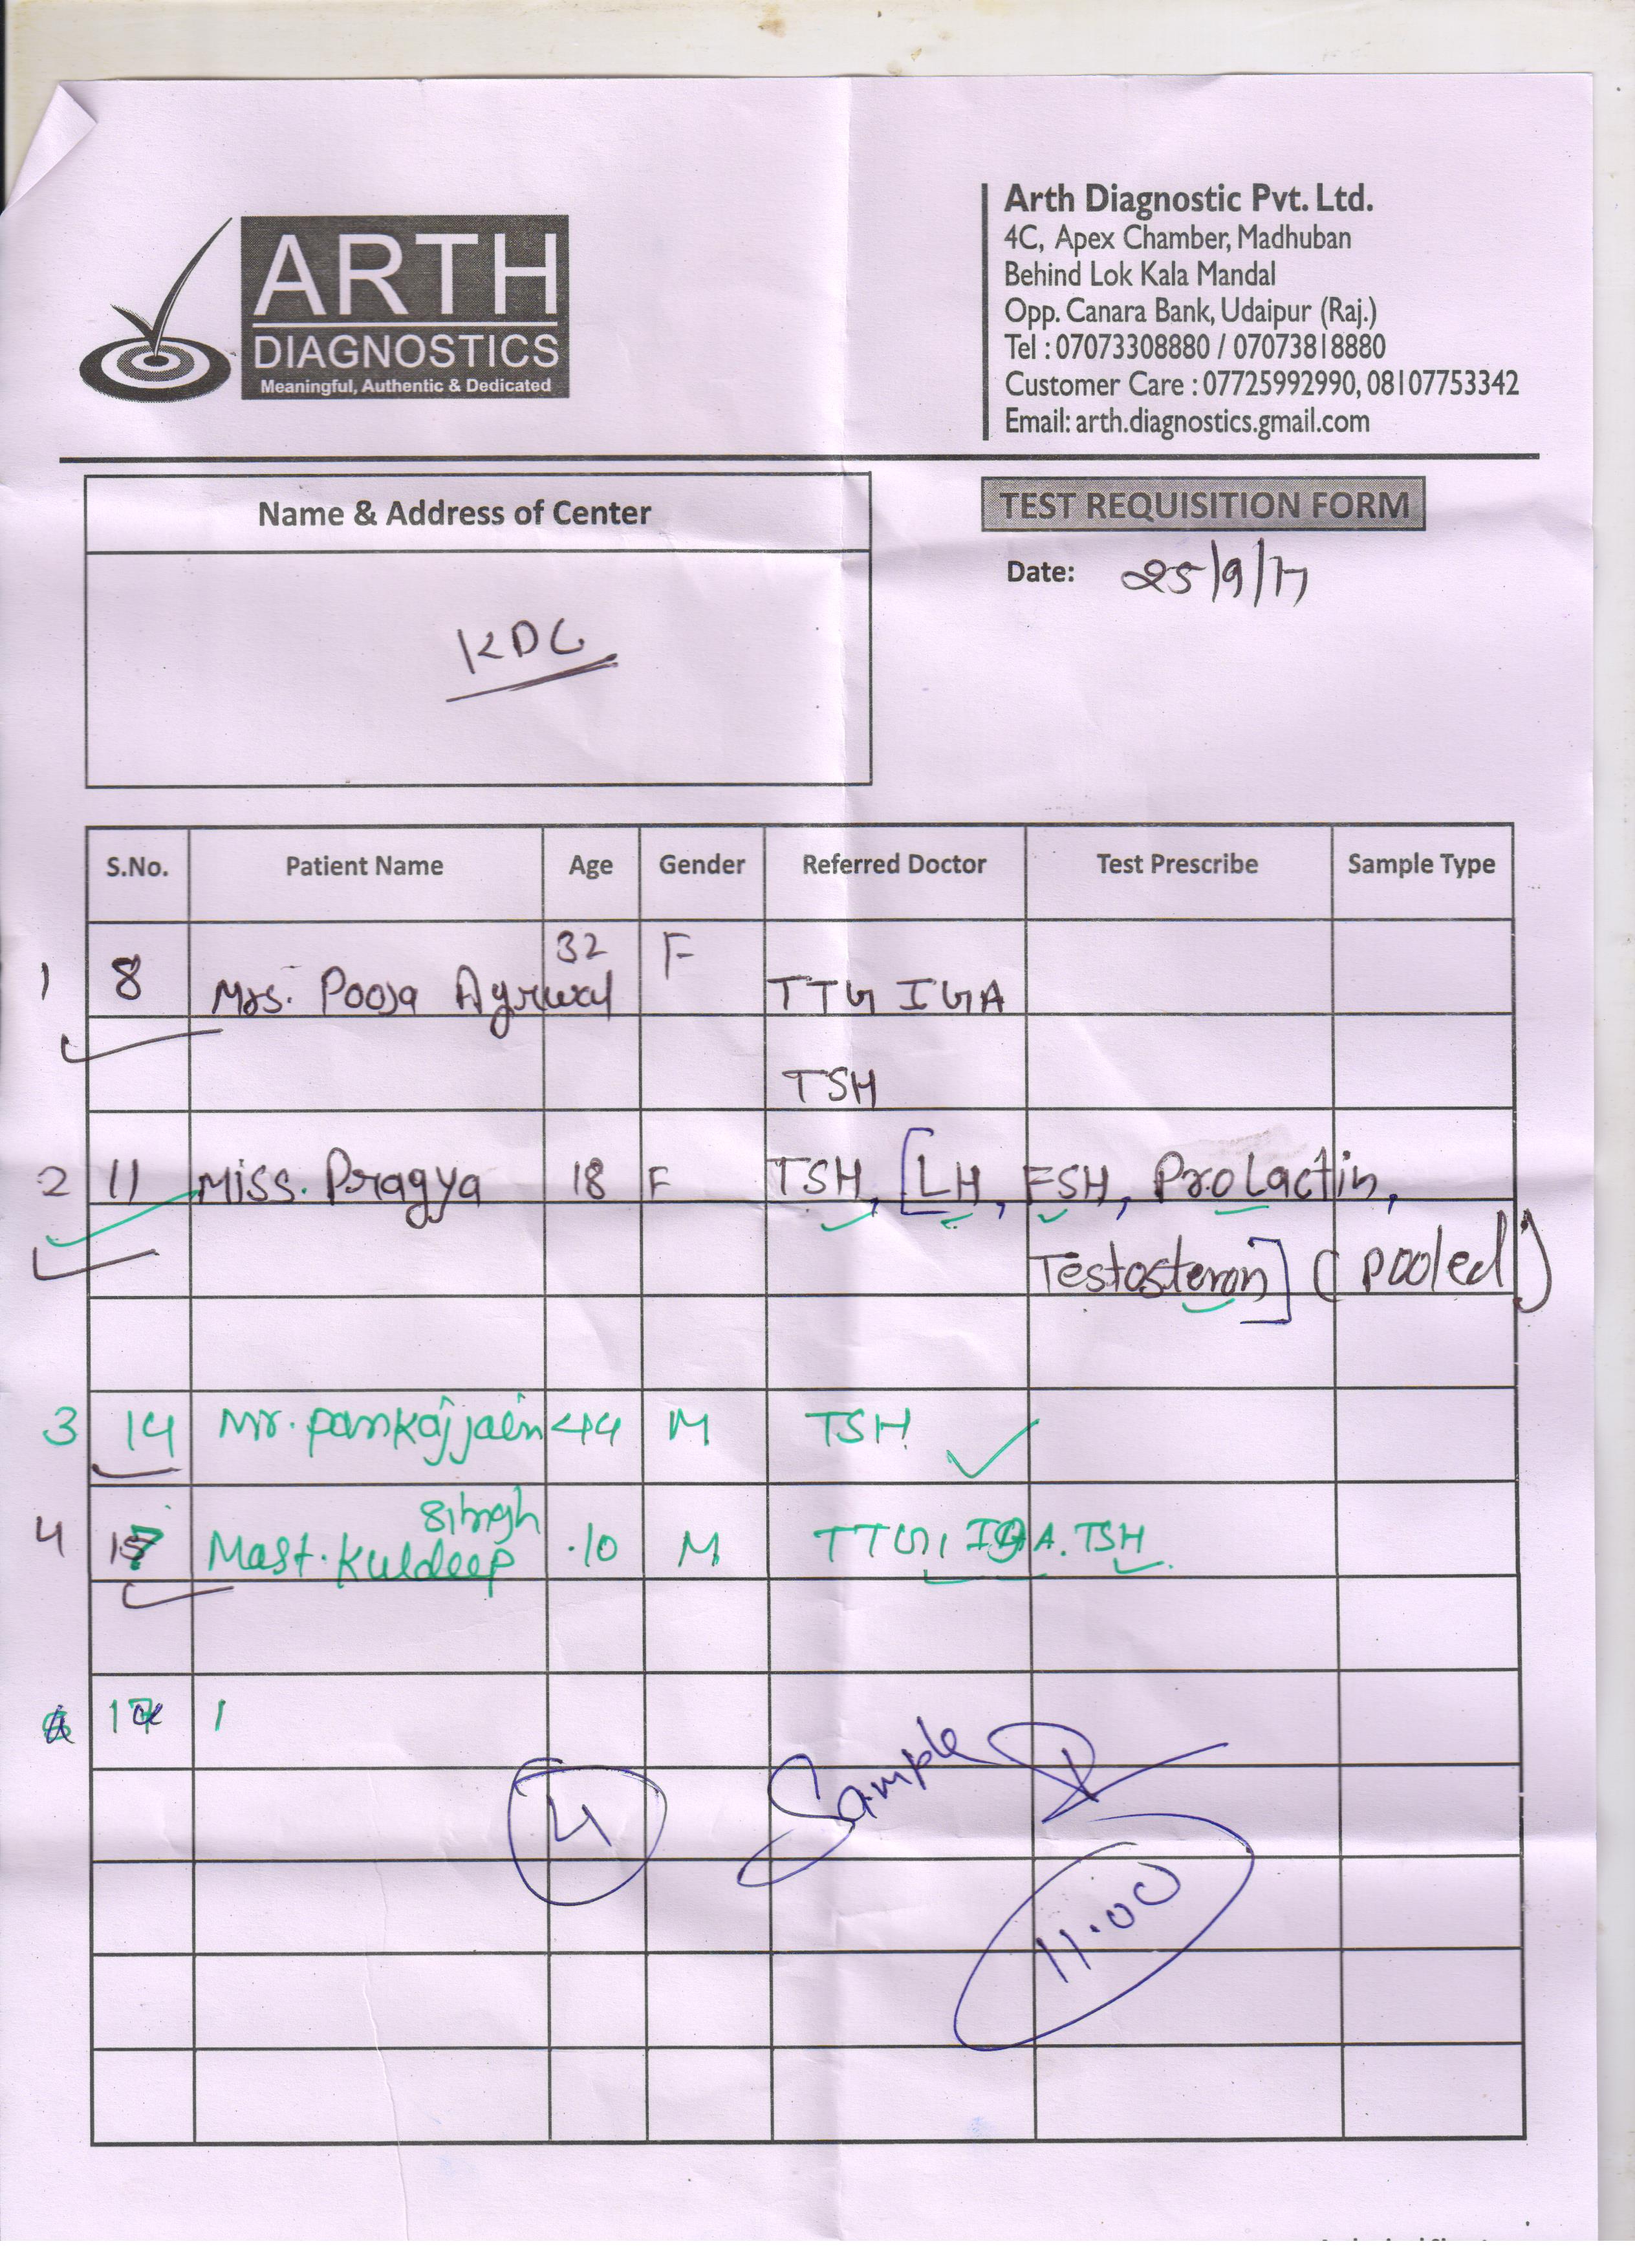 ARTH
DIAGNOSTICS
Meaningful, Authentic & Dedicated
Arth Diagnostic Pvt. Ltd.
4C, Apex Chamber, Madhuban
Behind Lok Kala Mandal
Opp. Canara Bank, Udaipur (Raj.)
Tel : 07073308880 / 07073818880
Customer Care : 07725992990, 08107753342
Email: arth.diagnostics.gmail.com
Name & Address of Center
KDC
TEST REQUISITION FORM
Date: 25/9/17
S.No. Patient Name Age Gender Referred Doctor Test Prescribe Sample Type
1 8 Mrs. Pooja Agrwal 32 F TTG IGA
TSH
2 11 Miss. Pragya 18 F TSH, [LH, FSH, Prolactin,
Testosteron] (pooled)
3 14 Mr. Pankaj jain 44 M TSH
4 Mast. Kuldeep Singh 10 M TTG, IGA. TSH
4 Sample
11.00